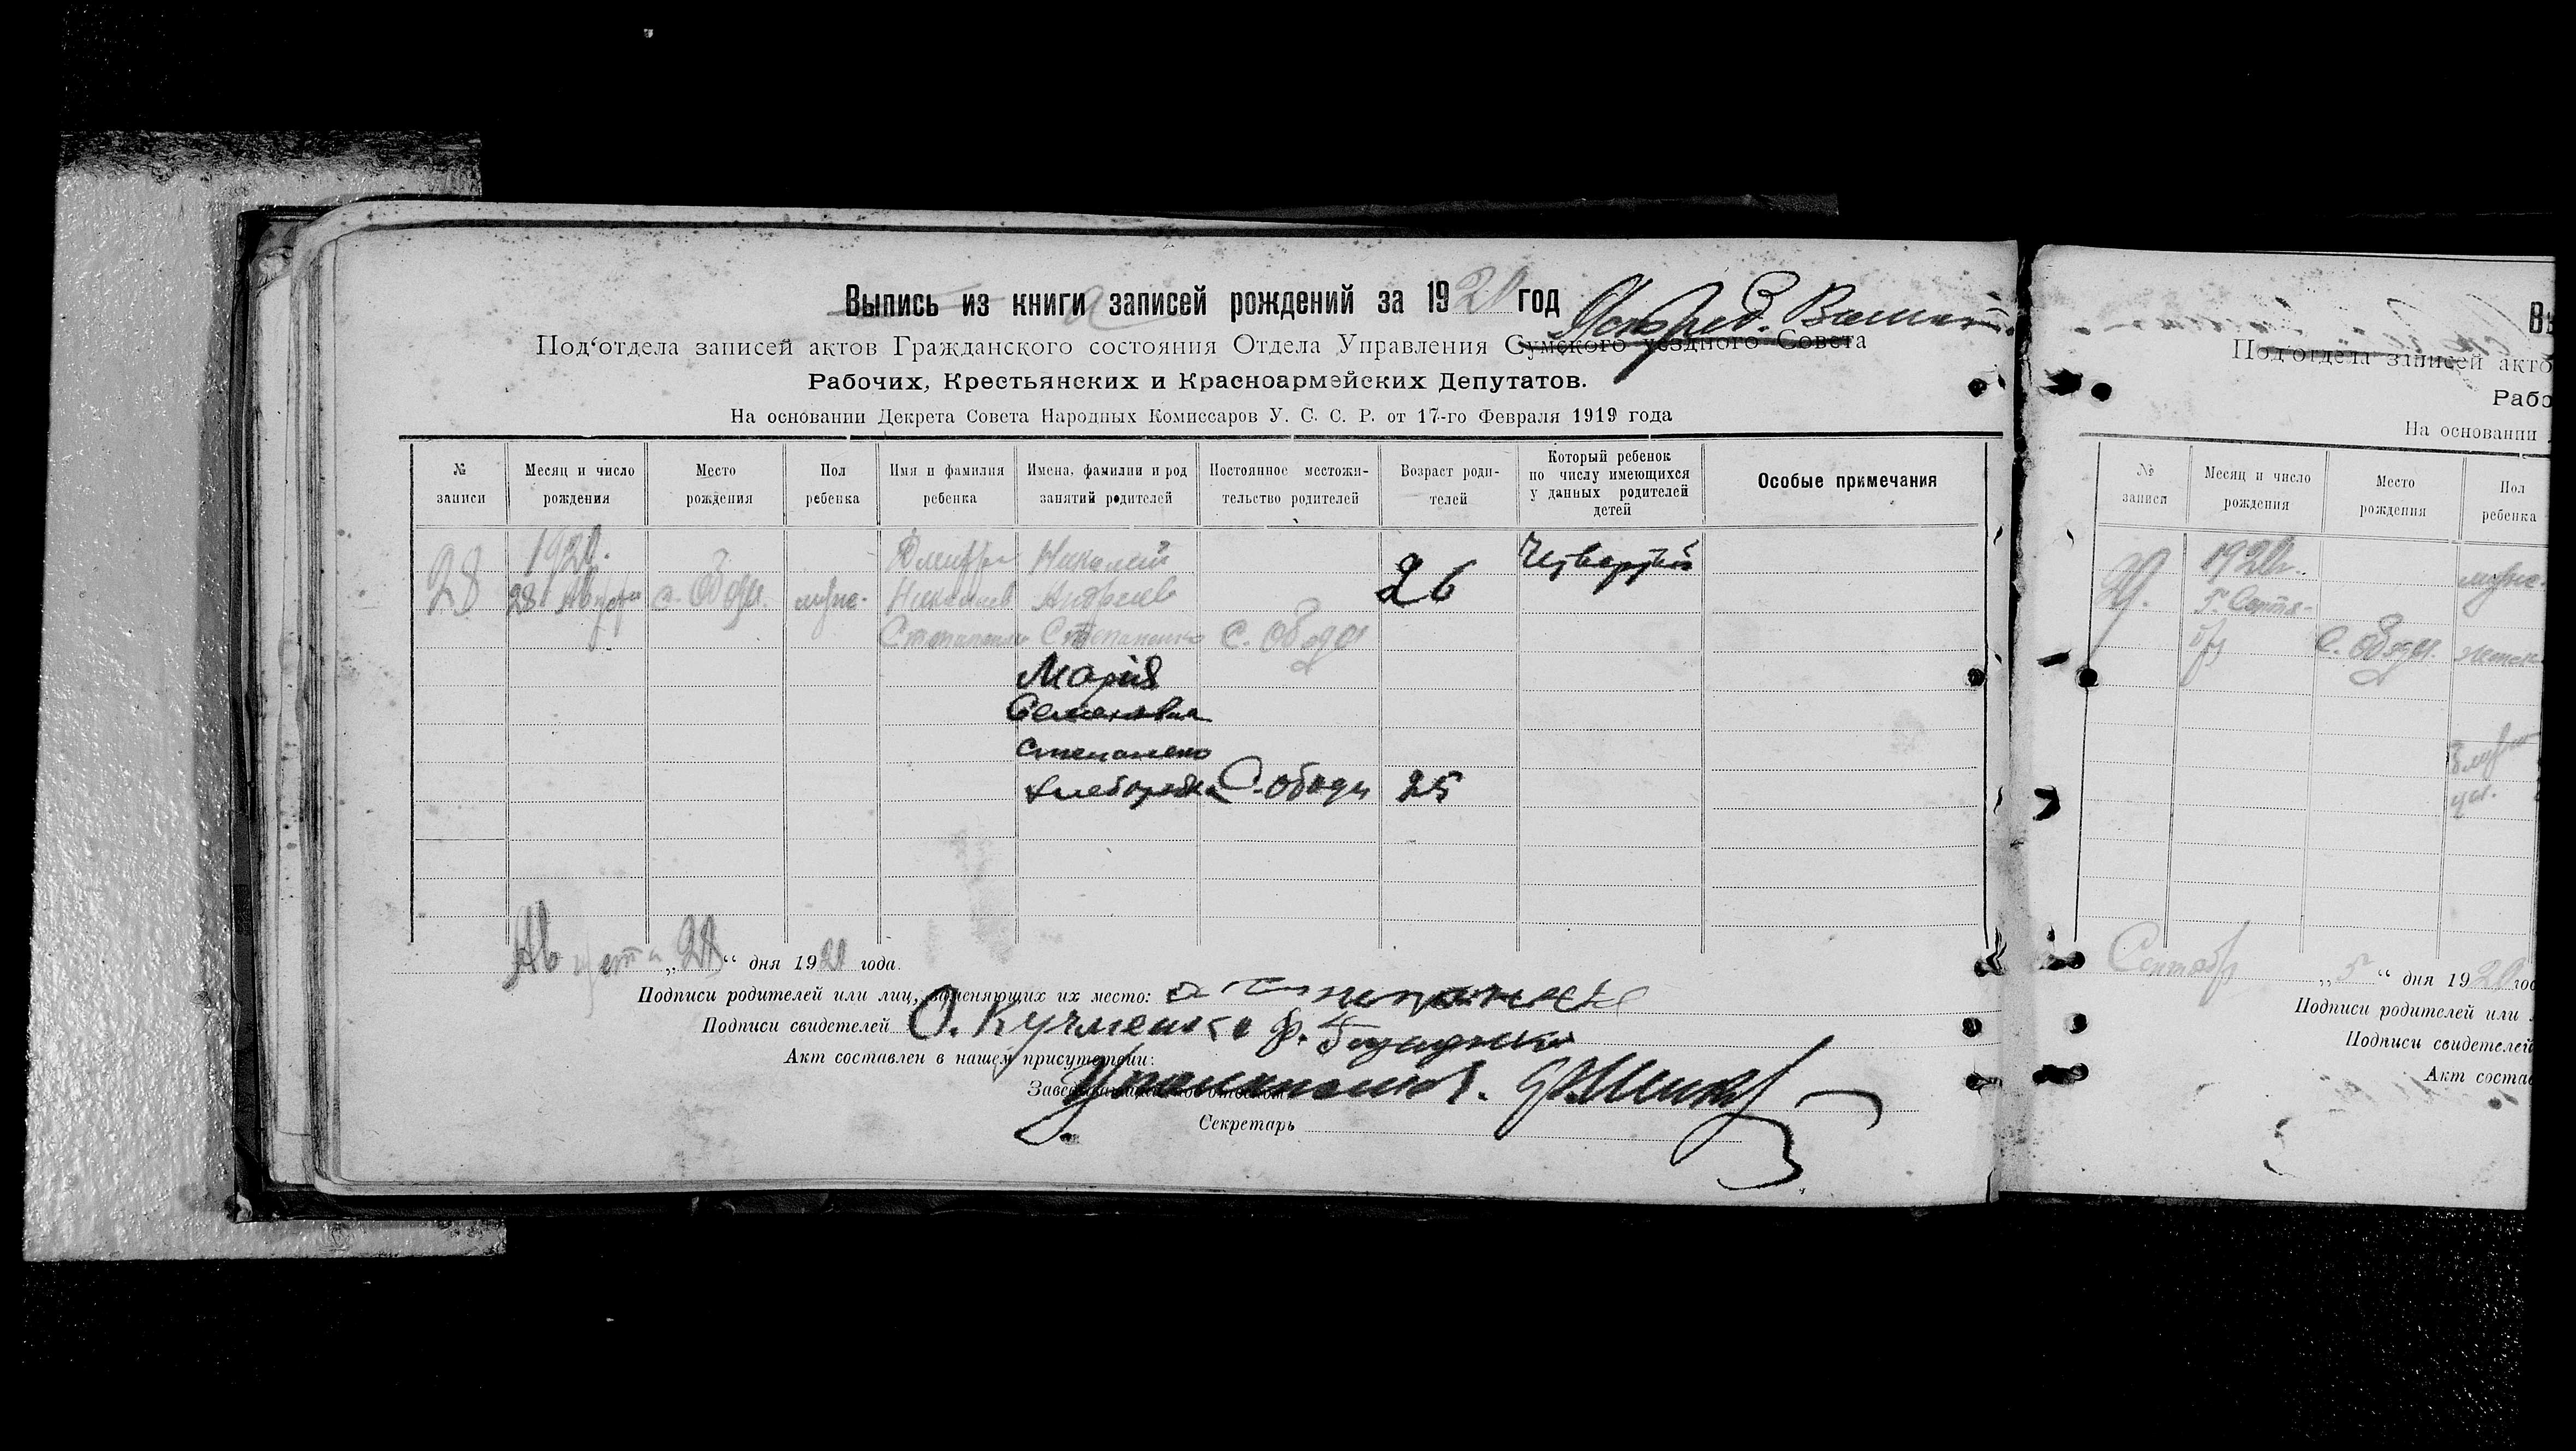 Выпись из книги записей рождений за 1920 год
Под'отдела записей актов Гражданского состояния Отдела Управления Сумского уездного Совета
Рабочих, Крестьянских и Красноармейских Депутатов.
На основании Декрета Совета Народных Комиссаров У. С. С. Р. от 17-го Февраля 1919 года
№ записи
Месяц и число рождения
Место рождения
Пол ребенка
Имя и фамилия ребенка
Имена, фамилии и род занятий родителей
Постоянное местожительство родителей
Возраст родителей
Который ребенок по числу имеющихся у данных родителей детей
Особые примечания
28
1920.
28 Августа
с. Ободы.
муж.
Дмитрий
Николаев
Степаненко
Николай
Андреев
Степаненко
с. Ободы
26
Четвертый
Мария
Семеновна
Степаненко
хлеборобка
С. Ободы
25
Августа „28“ дня 1920 года.
Подписи родителей или лиц, заменяющих их место: Степаненко
Подписи свидетелей О. Кучменко Ф.
Акт составлен в нашем присутствии:
Заведывающий под'отделом
Секретарь
Вы
Под'отдела записей акто
Рабо
На основании
№ записи
Месяц и число рождения
Место рождения
Пол ребенка
29.
1920г.
5. Сентя-
бря
С. Ободы.
муже-
женск
Сентябр „5“ дня 1920 год
Подписи родителей или
Подписи свидетелей
Акт состав